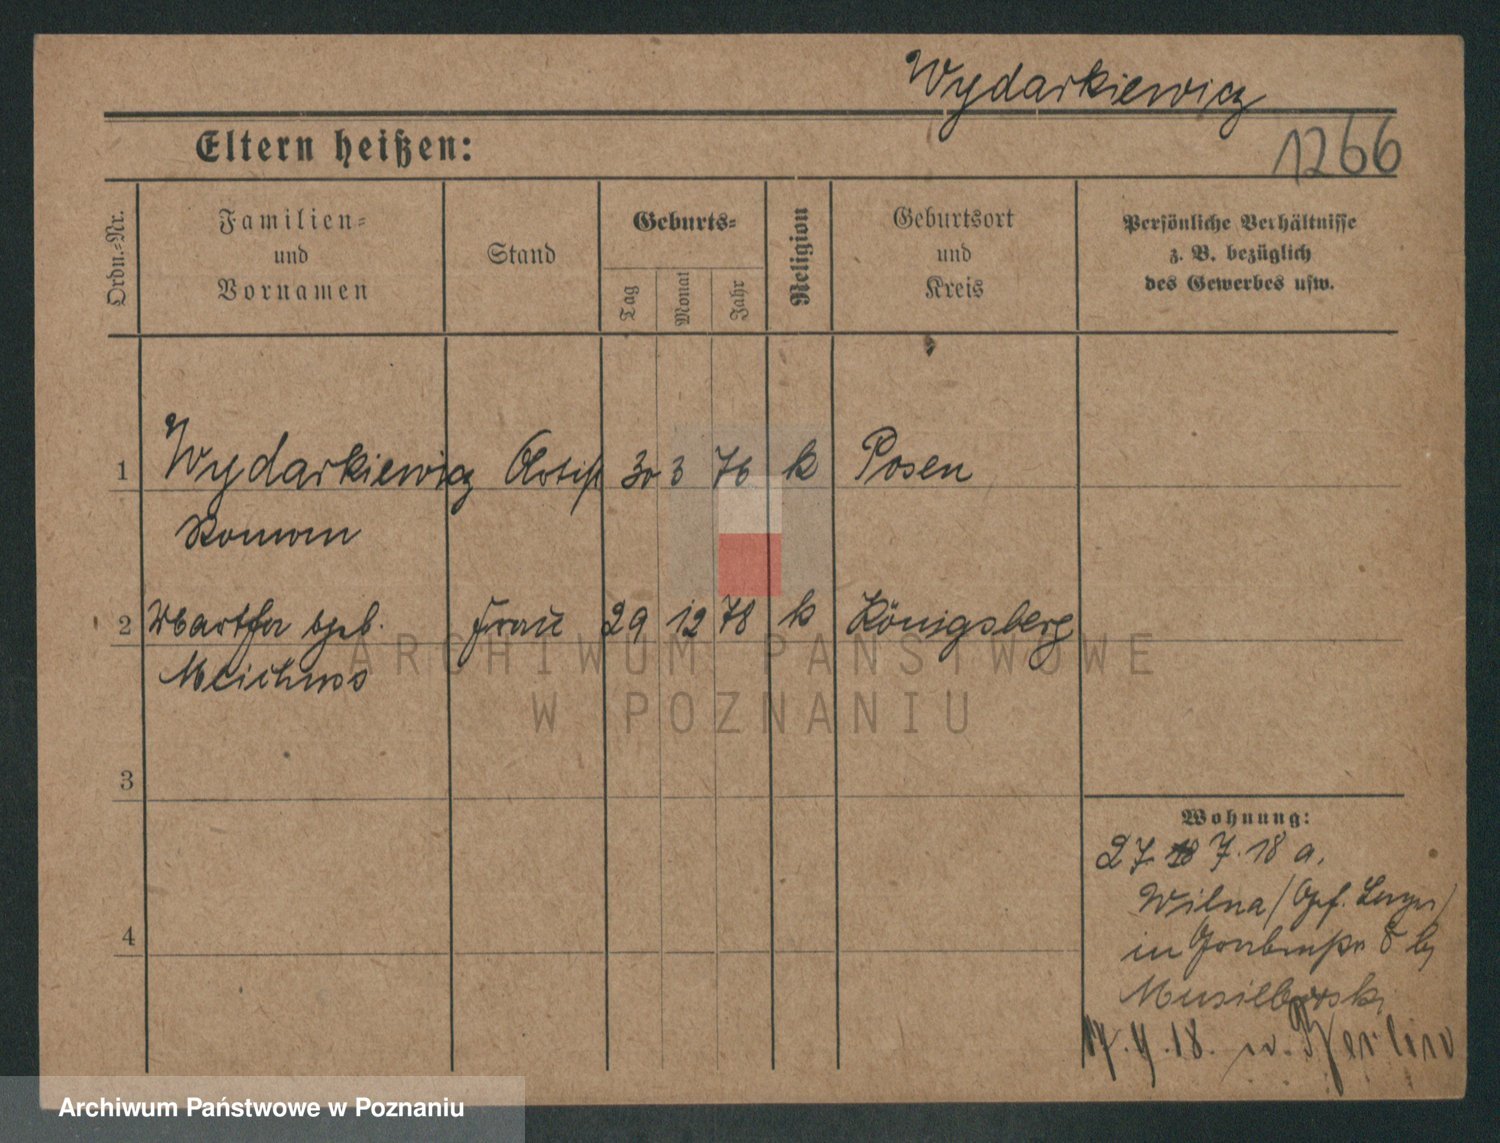 Wydarkiewicz
1266
Eltern heißen:
Ordn.-Nr.
Familien-
und
Vornamen
Stand
Geburts-
Tag
Monat
Jahr
Religion
Geburtsort
und
Kreis
Persönliche Verhältnisse
z. B. bezüglich
des Gewerbes usw.
1 Wydarkiewicz Artist 30 3 76 k Posen
Roman
2 Martha geb. Frau 29 12 78 k Königsberg
3
4
Wohnung:
27. 7. 18 a.
Wilna
in 8 b
17.9.18. n. Berlin
ARCHIWUM PAŃSTWOWE
W POZNANIU
Archiwum Państwowe w Poznaniu